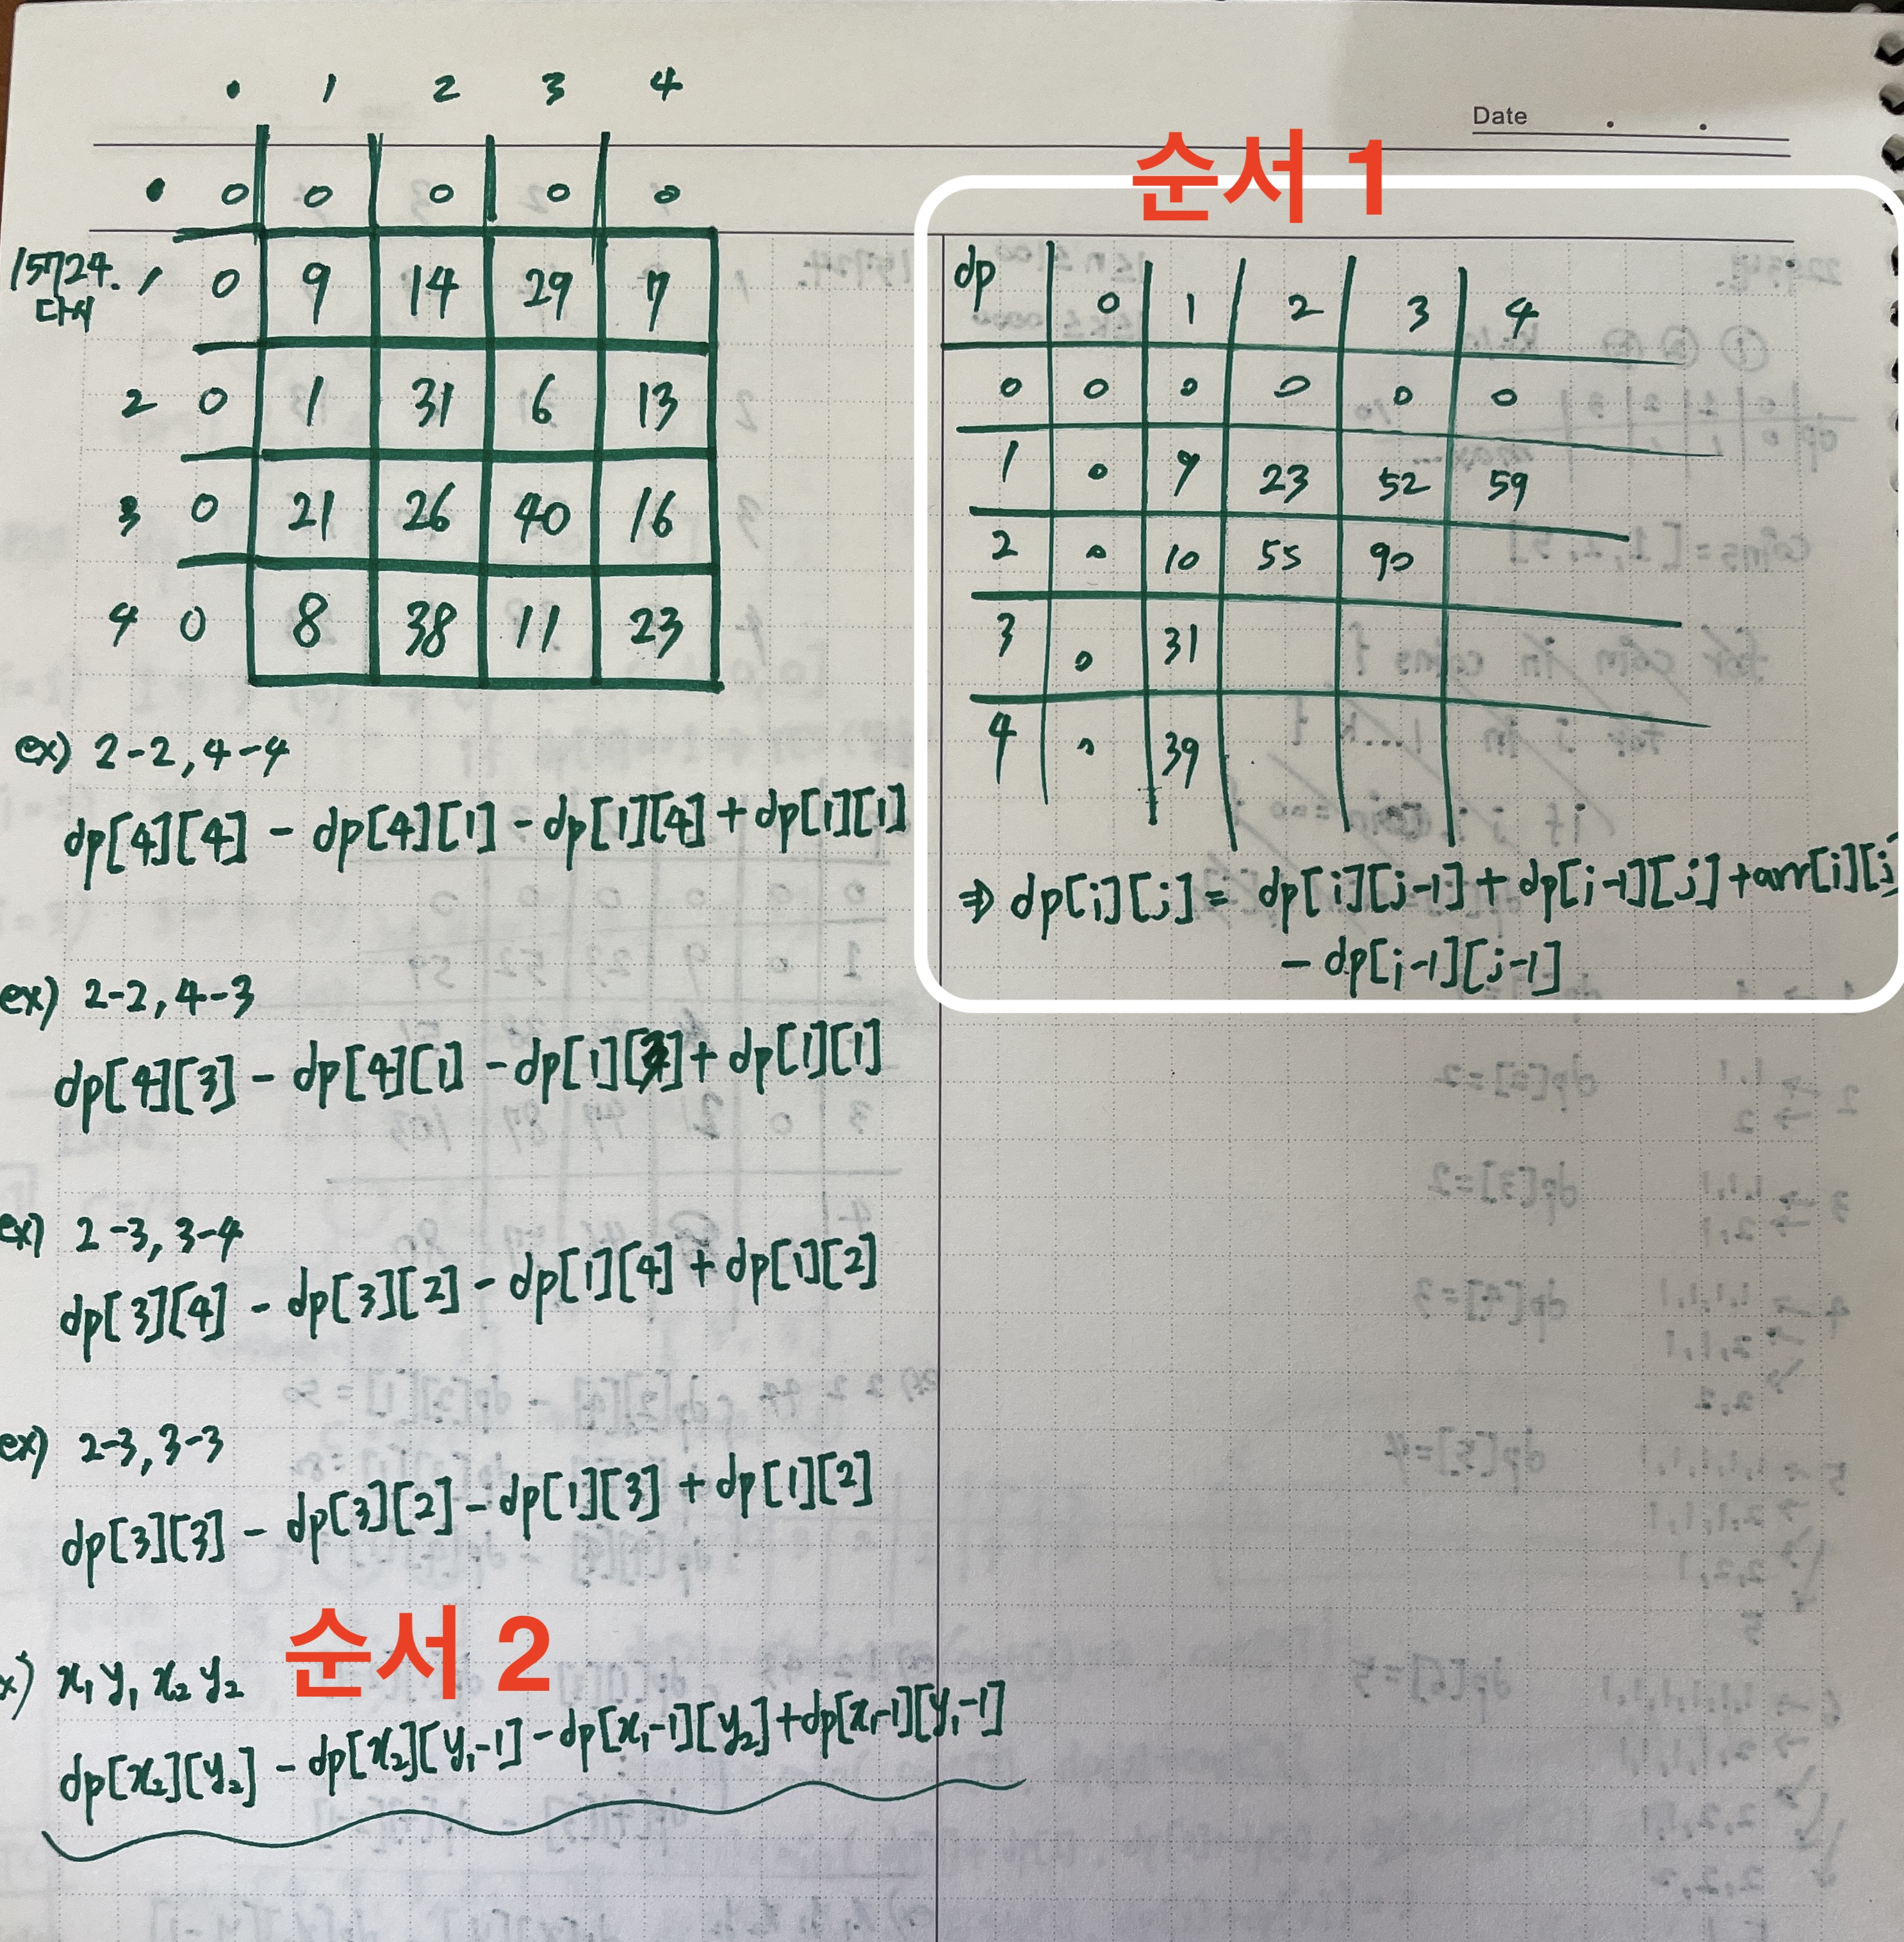 Date . .
0 1 2 3 4
0 0 0 0 0 0
15724. 1 0 9 14 29 7
다시
2 0 1 31 6 13
3 0 21 26 40 16
4 0 8 38 11 23
ex) 2-2, 4-4
dp[4][4] - dp[4][1] - dp[1][4] + dp[1][1]
ex) 2-2, 4-3
dp[4][3] - dp[4][1] - dp[1][3] + dp[1][1]
ex) 2-3, 3-4
dp[3][4] - dp[3][2] - dp[1][4] + dp[1][2]
ex) 2-3, 3-3
dp[3][3] - dp[3][2] - dp[1][3] + dp[1][2]
순서 2
x) x₁ y₁ x₂ y₂
dp[x₂][y₂] - dp[x₂][y₁-1] - dp[x₁-1][y₂] + dp[x₁-1][y₁-1]
순서 1
dp 0 1 2 3 4
0 0 0 0 0 0
1 0 9 23 52 59
2 0 10 55 90
3 0 31
4 0 39
⇒ dp[i][j] = dp[i][j-1] + dp[i-1][j] + arr[i][j]
- dp[i-1][j-1]